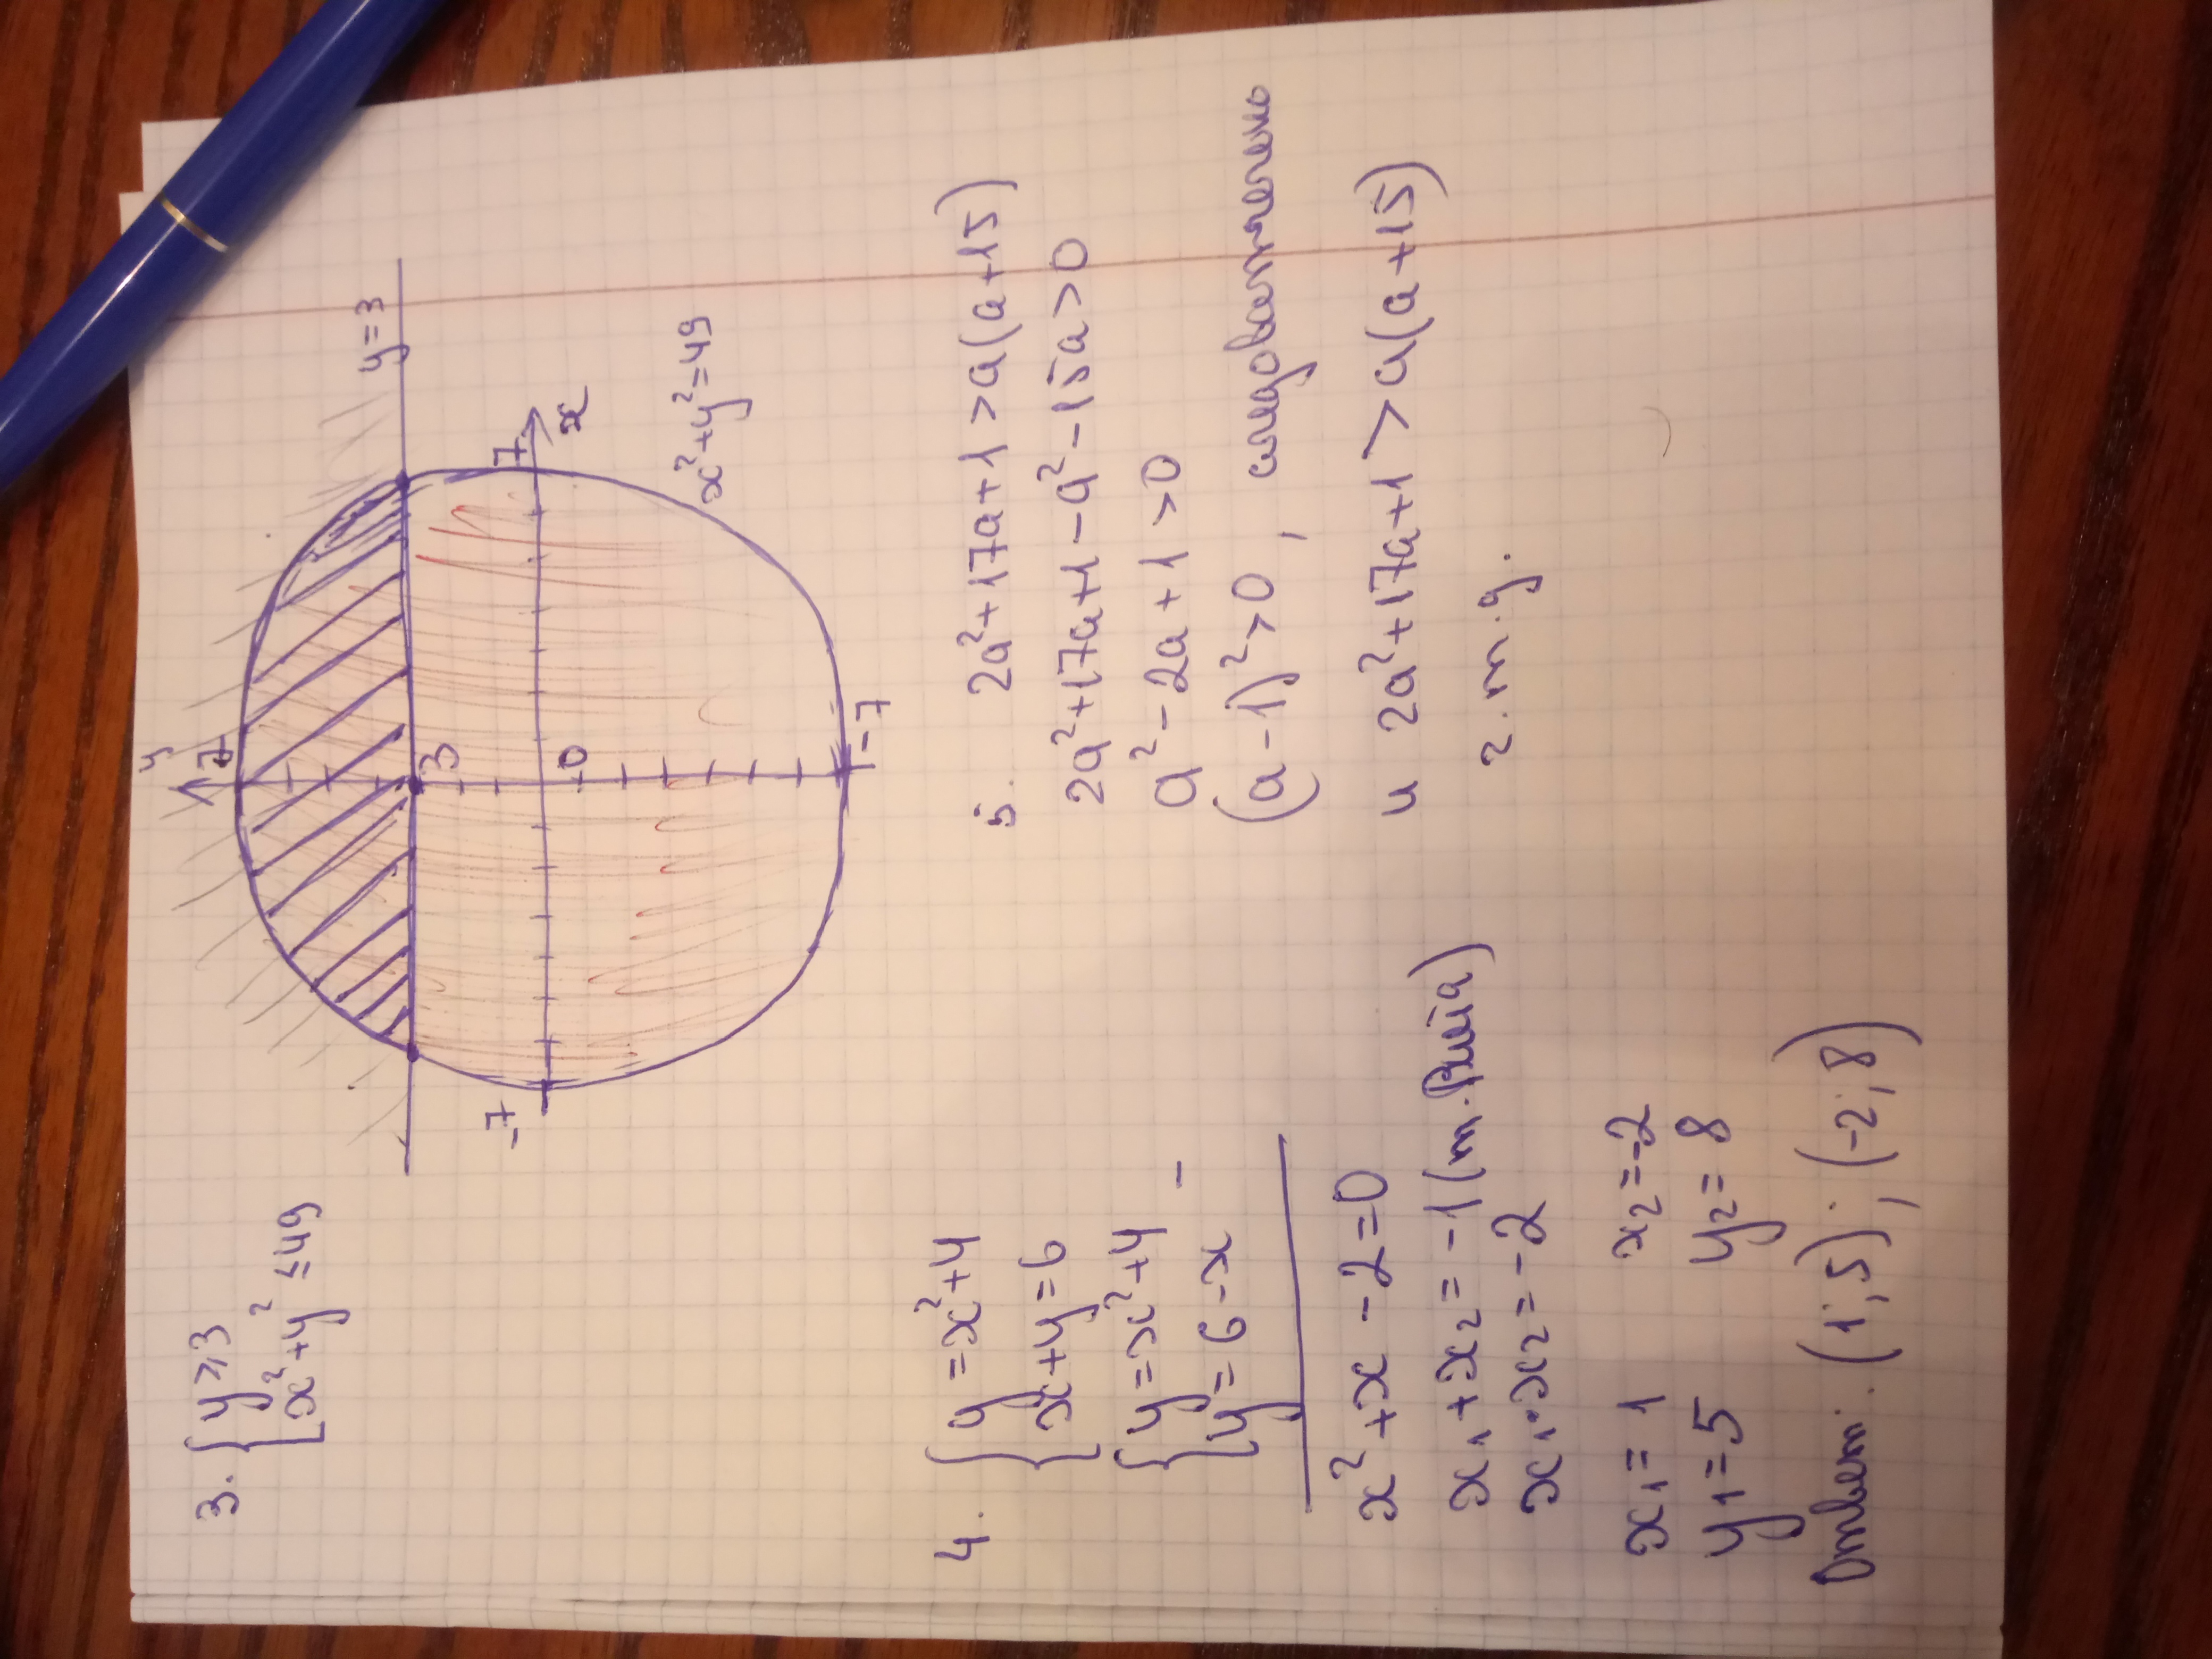 3. { y ⩾ 3
x² + y² ≤ 49
y
7
y = 3
3
-7
0
7
x
x² + y² = 49
-7
4. { y = x² + 4
x + y = 6
{ y = x² + 4 -
y = 6 - x
x² + x - 2 = 0
x₁ + x₂ = -1 (т. Виета)
x₁ · x₂ = -2
x₁ = 1 x₂ = -2
y₁ = 5 y₂ = 8
Ответ: (1; 5); (-2; 8)
5. 2a² + 17a + 1 > a(a + 15)
2a² + 17a + 1 - a² - 15a > 0
a² - 2a + 1 > 0
(a - 1)² > 0, следовательно
и 2a² + 17a + 1 > a(a + 15)
ч.т.д.